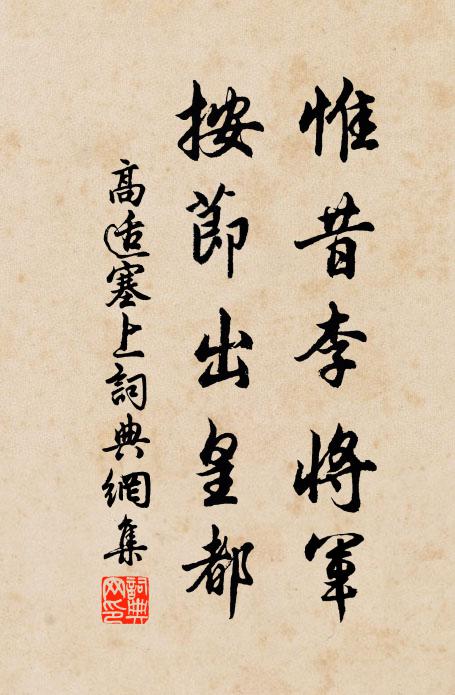 惟昔李將軍
按節出皇都
高适塞上詞典網集
詞典網印